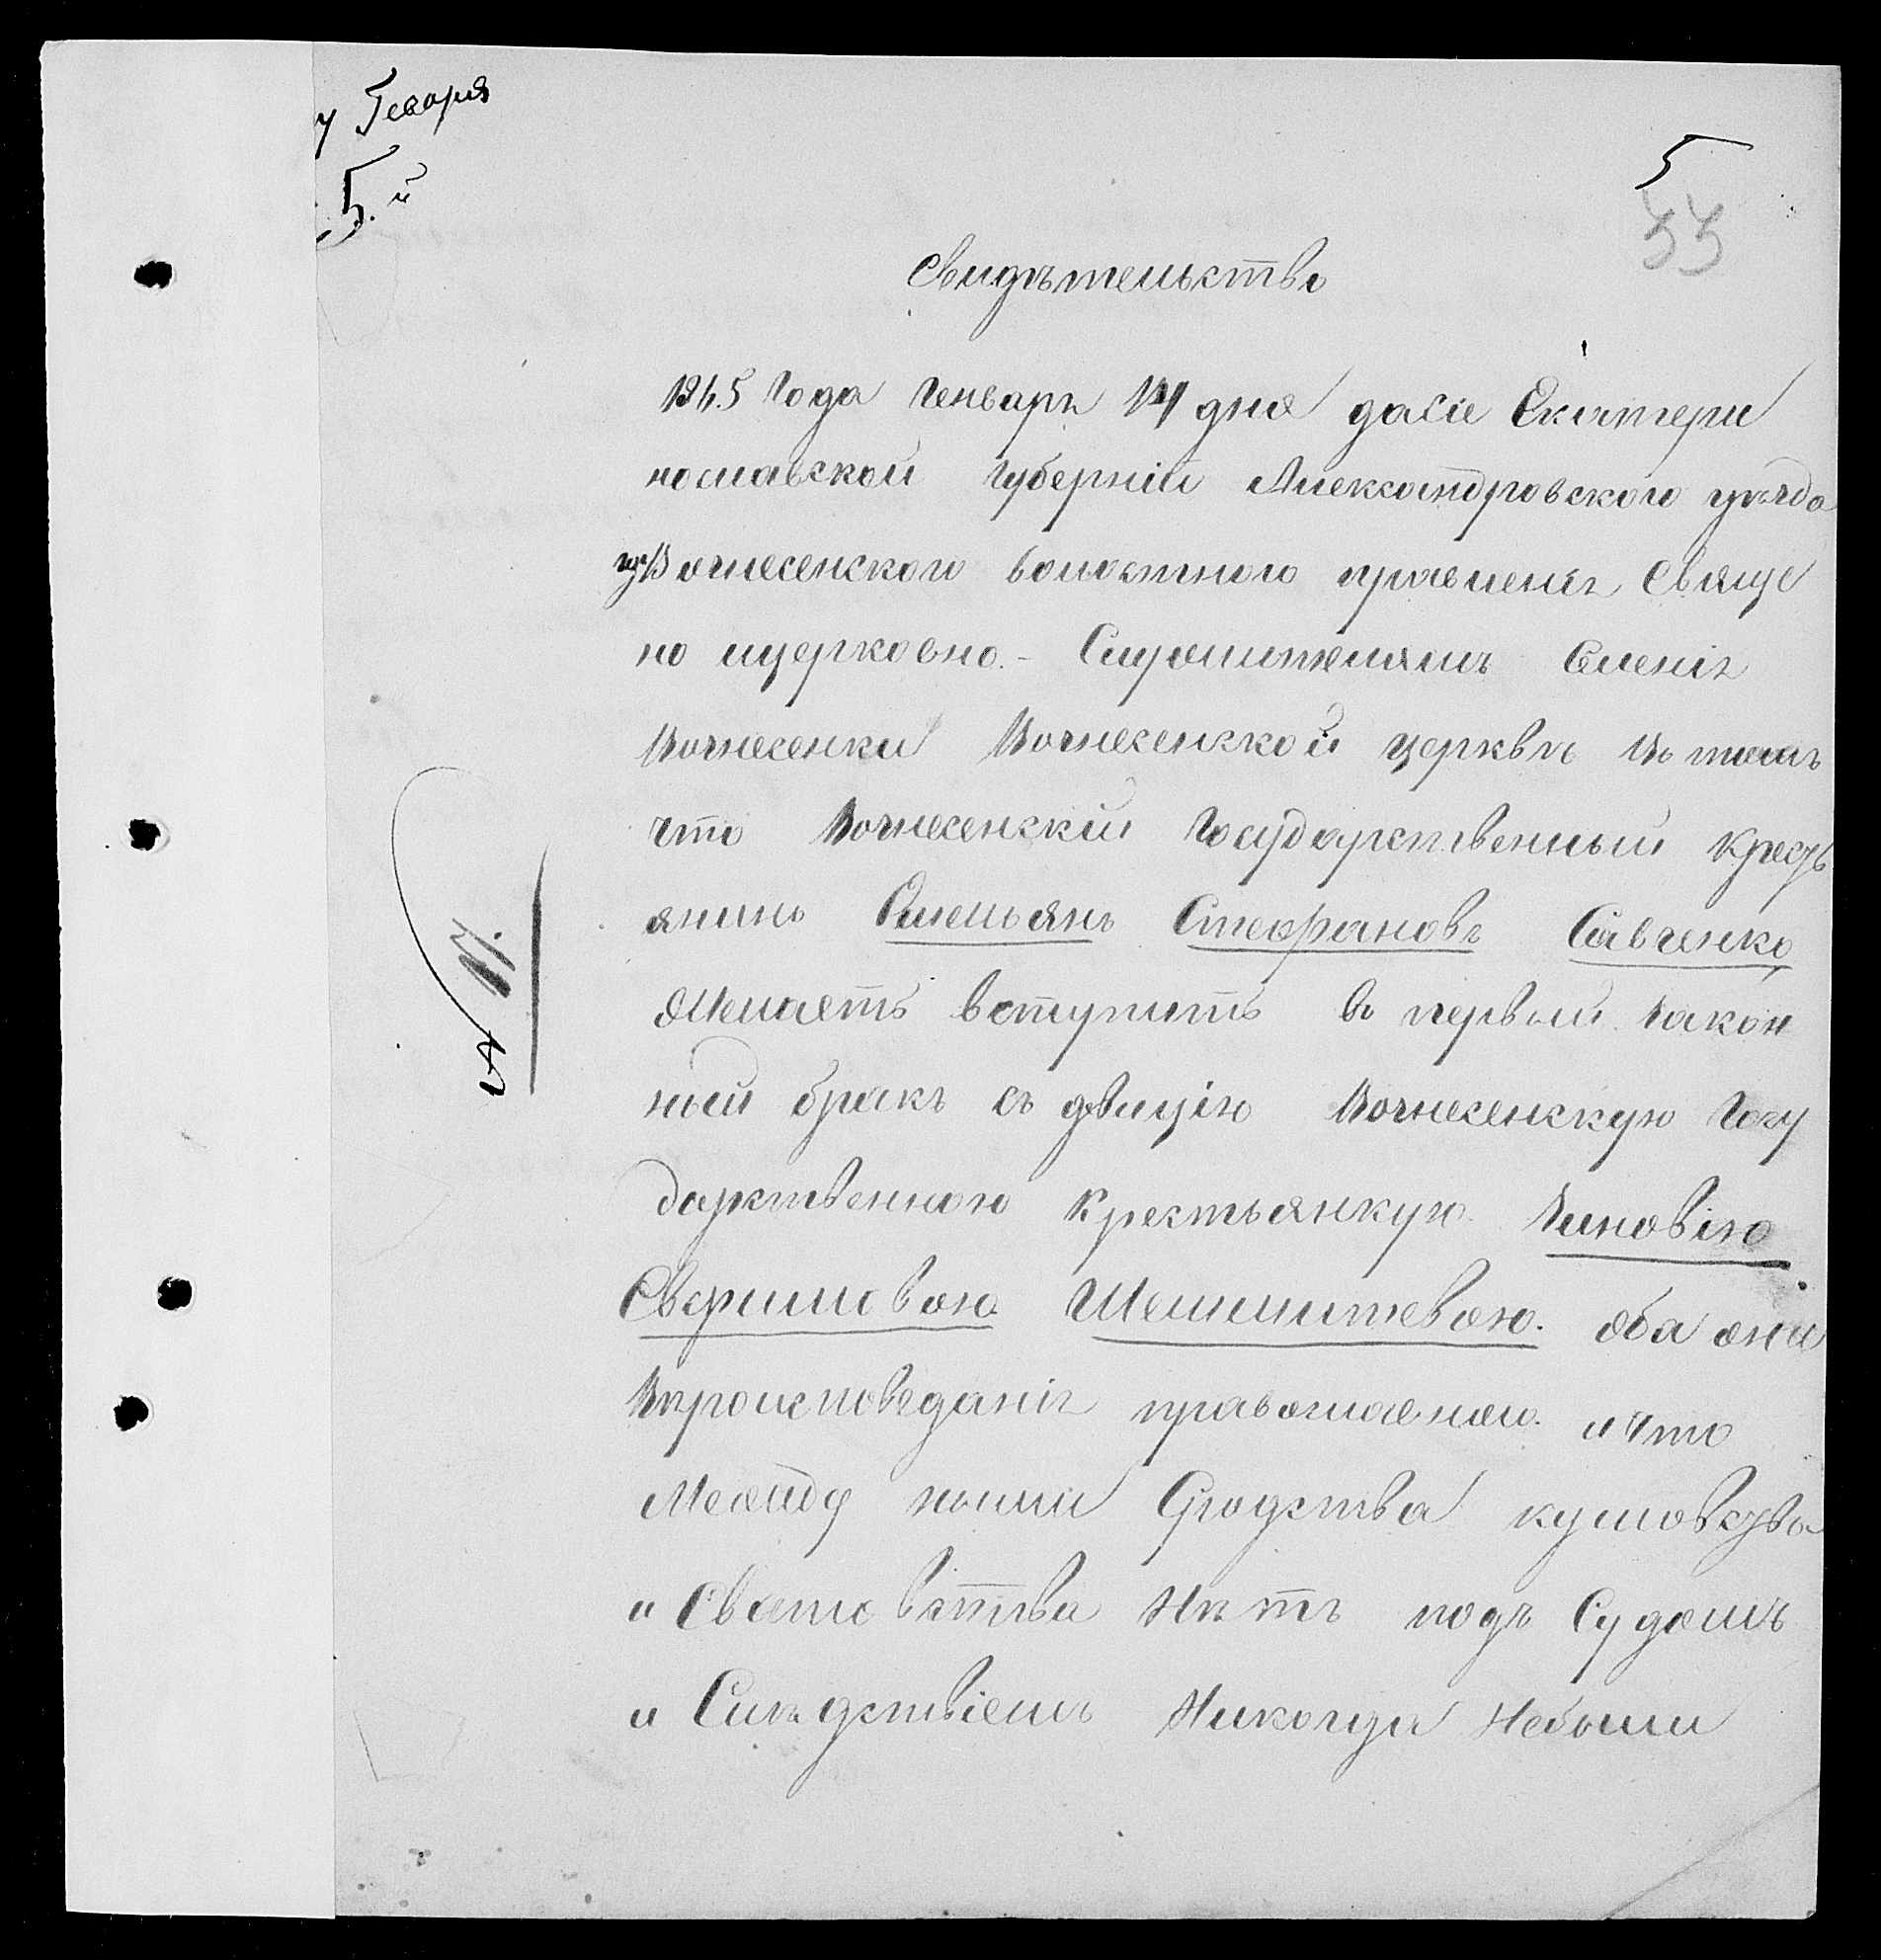 Генваря
5.й
5
33
Свидѣтельство
1845 Года Генварѣ 14 дня дасіе Екатери
нославской Губерніи Александровского уѣзда
Вознесенского волостного правленіѣ Свяще
но ицерковно - Служителямъ Селеніѣ
Вознесенки Вознесенской церквѣ Въ томъ
что Вознесенскій Государственный Кресть
янинъ Омельянъ Стефановъ Савченко
Желаетъ вступитъ въ первый закон
ный бракъ съ дѣвицію Вознесенскую Госу
дарственною Крестьянкую Зиновію
Евфимовою Шелепитевою. оба они
Вѣроисповеданіѣ православною. и что
Между ними Сродства кумовства
и Сватовства Нѣтъ подъ Судомъ
и Слѣдствіемъ Никогда Небыли